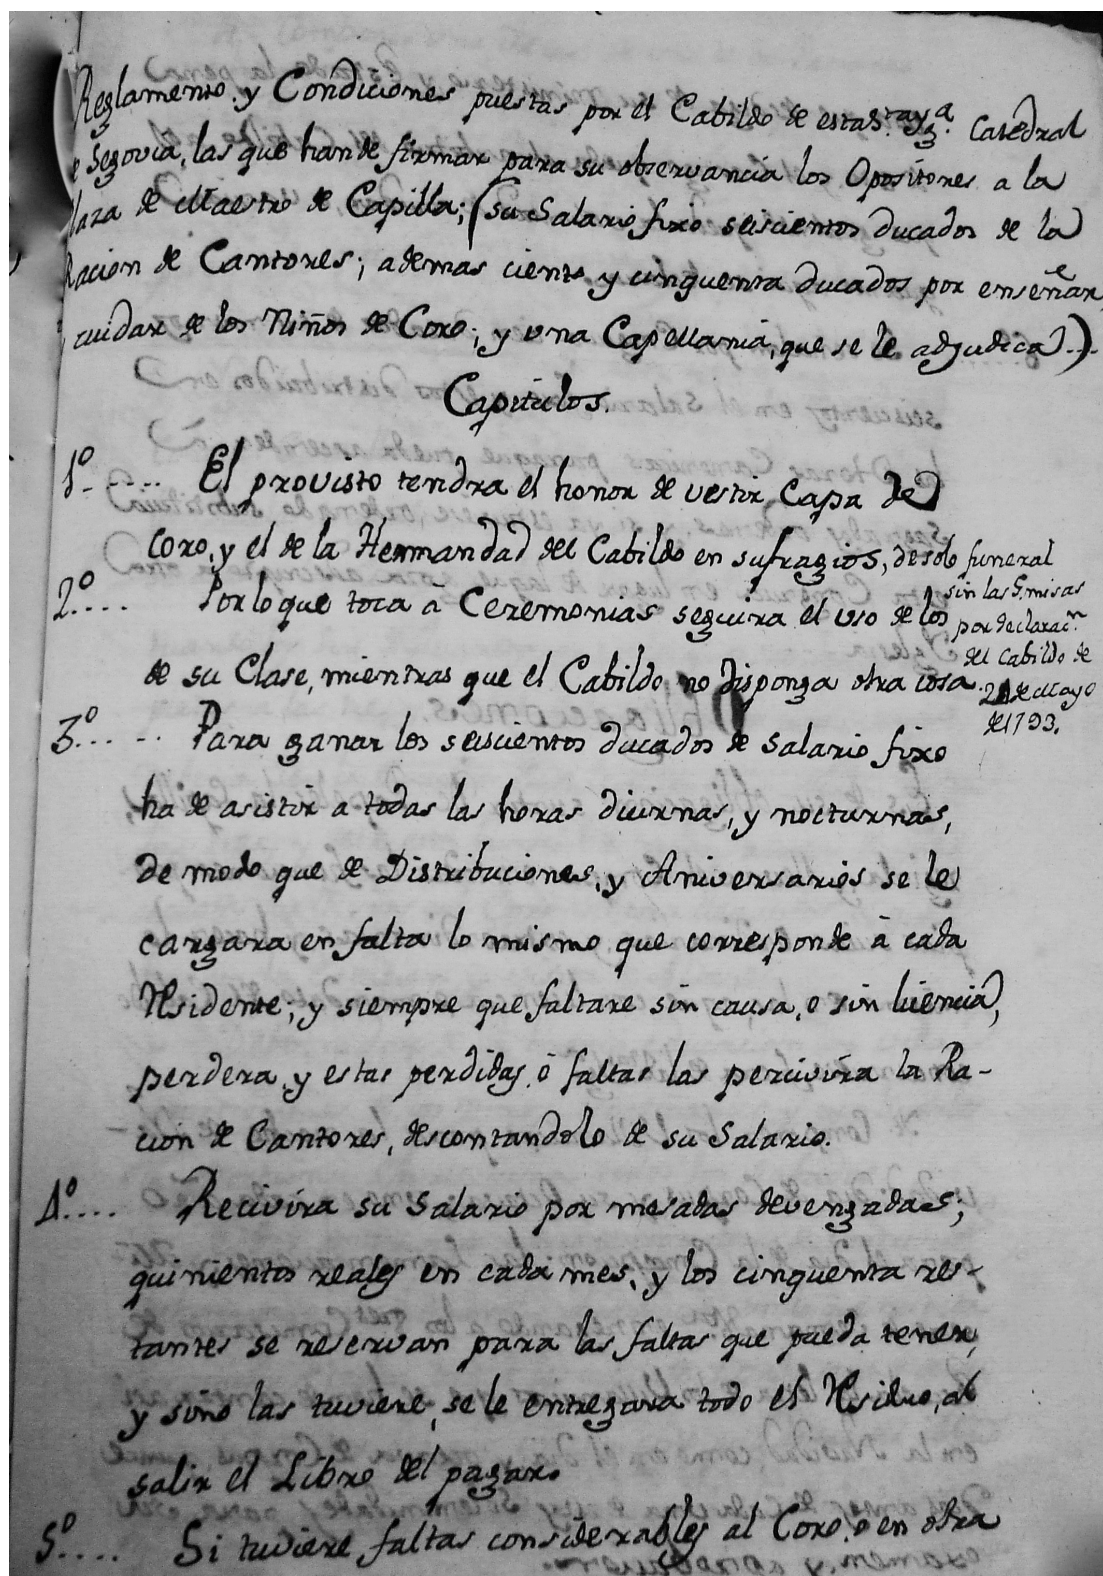 Reglamento, y Condiciones puestas por el Cabildo de esta S.ta Yg.a Catedral
e Segovia, las que han de firmar para su observancia los Opositores a la
laza de Maestro de Capilla; (su Salario fixo seiscientos ducados de la
Racion de Cantores; ademas ciento y cinquenta ducados por enseñar, e
cuidar de los Niños de Coro; y una Capellania, que se le adjudica)...
Capitulos.
1º..... El provisto tendra el honor de vestir Capa de
Coro, y el de la Hermandad del Cabildo en sufragios, de solo funeral
sin las 5. misas
por declarac.n
del Cabildo de
de Mayo
de 1793.
2º.... Por lo que toca à Ceremonias seguira el uso de los
de su Clase, mientras que el Cabildo no disponga otra cosa.
3º..... Para ganar los seiscientos ducados de salario fixo
ha de asistir a todas las horas diurnas, y nocturnas,
de modo que de Distribuciones, y Aniversarios se le
cargara en falta lo mismo que corresponde à cada
Residente; y siempre que faltare sin causa, o sin licencia,
perdera, y estas perdidas, ò faltas las percivira la Ra-
cion de Cantores, descontandolo de su Salario.
4º.... Recivira su salario por mesadas devengadas;
quinientos reales en cada mes, y los cinquenta res-
tantes se reservan para las faltas que pueda tener,
y sino las tuviere, se le entregara todo el Residuo, al
salir el Libro del pagar.
5º.... Si tuviere faltas considerables al Coro, o en otra